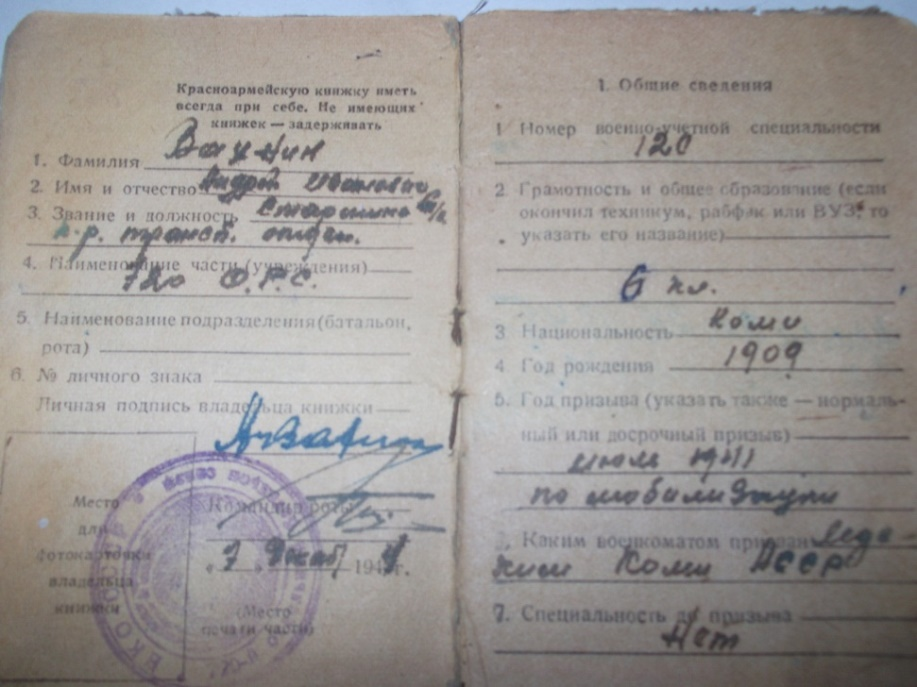 Красноармейскую книжку иметь
всегда при себе. Не имеющих
книжек — задерживать
1. Фамилия
2. Имя и отчество Андрей Иванович
3. Звание и должность Старшина
к-р. трансп. отден.
4. Наименование части (учреждения)
720 О.Р.С.
5. Наименование подразделения (батальон,
рота)
6. № личного знака
Личная подпись владельца книжки
Место
для
фотокарточки
владельца
книжки
Командир роты
„7 декаб 194 г.
(Место
печати части)
1. Общие сведения
1 Номер военно-учетной специальности
120
2 Грамотность и общее образование (если
окончил техникум, рабфак или ВУЗ, то
указать его название)
6 кл.
3 Национальность Коми
4 Год рождения 1909
5. Год призыва (указать также — нормаль-
ный или досрочный призыв)
июль 1941
по мобилизации
Каким военкоматом призван
Коми АССР
7. Специальность до призыва
Нет